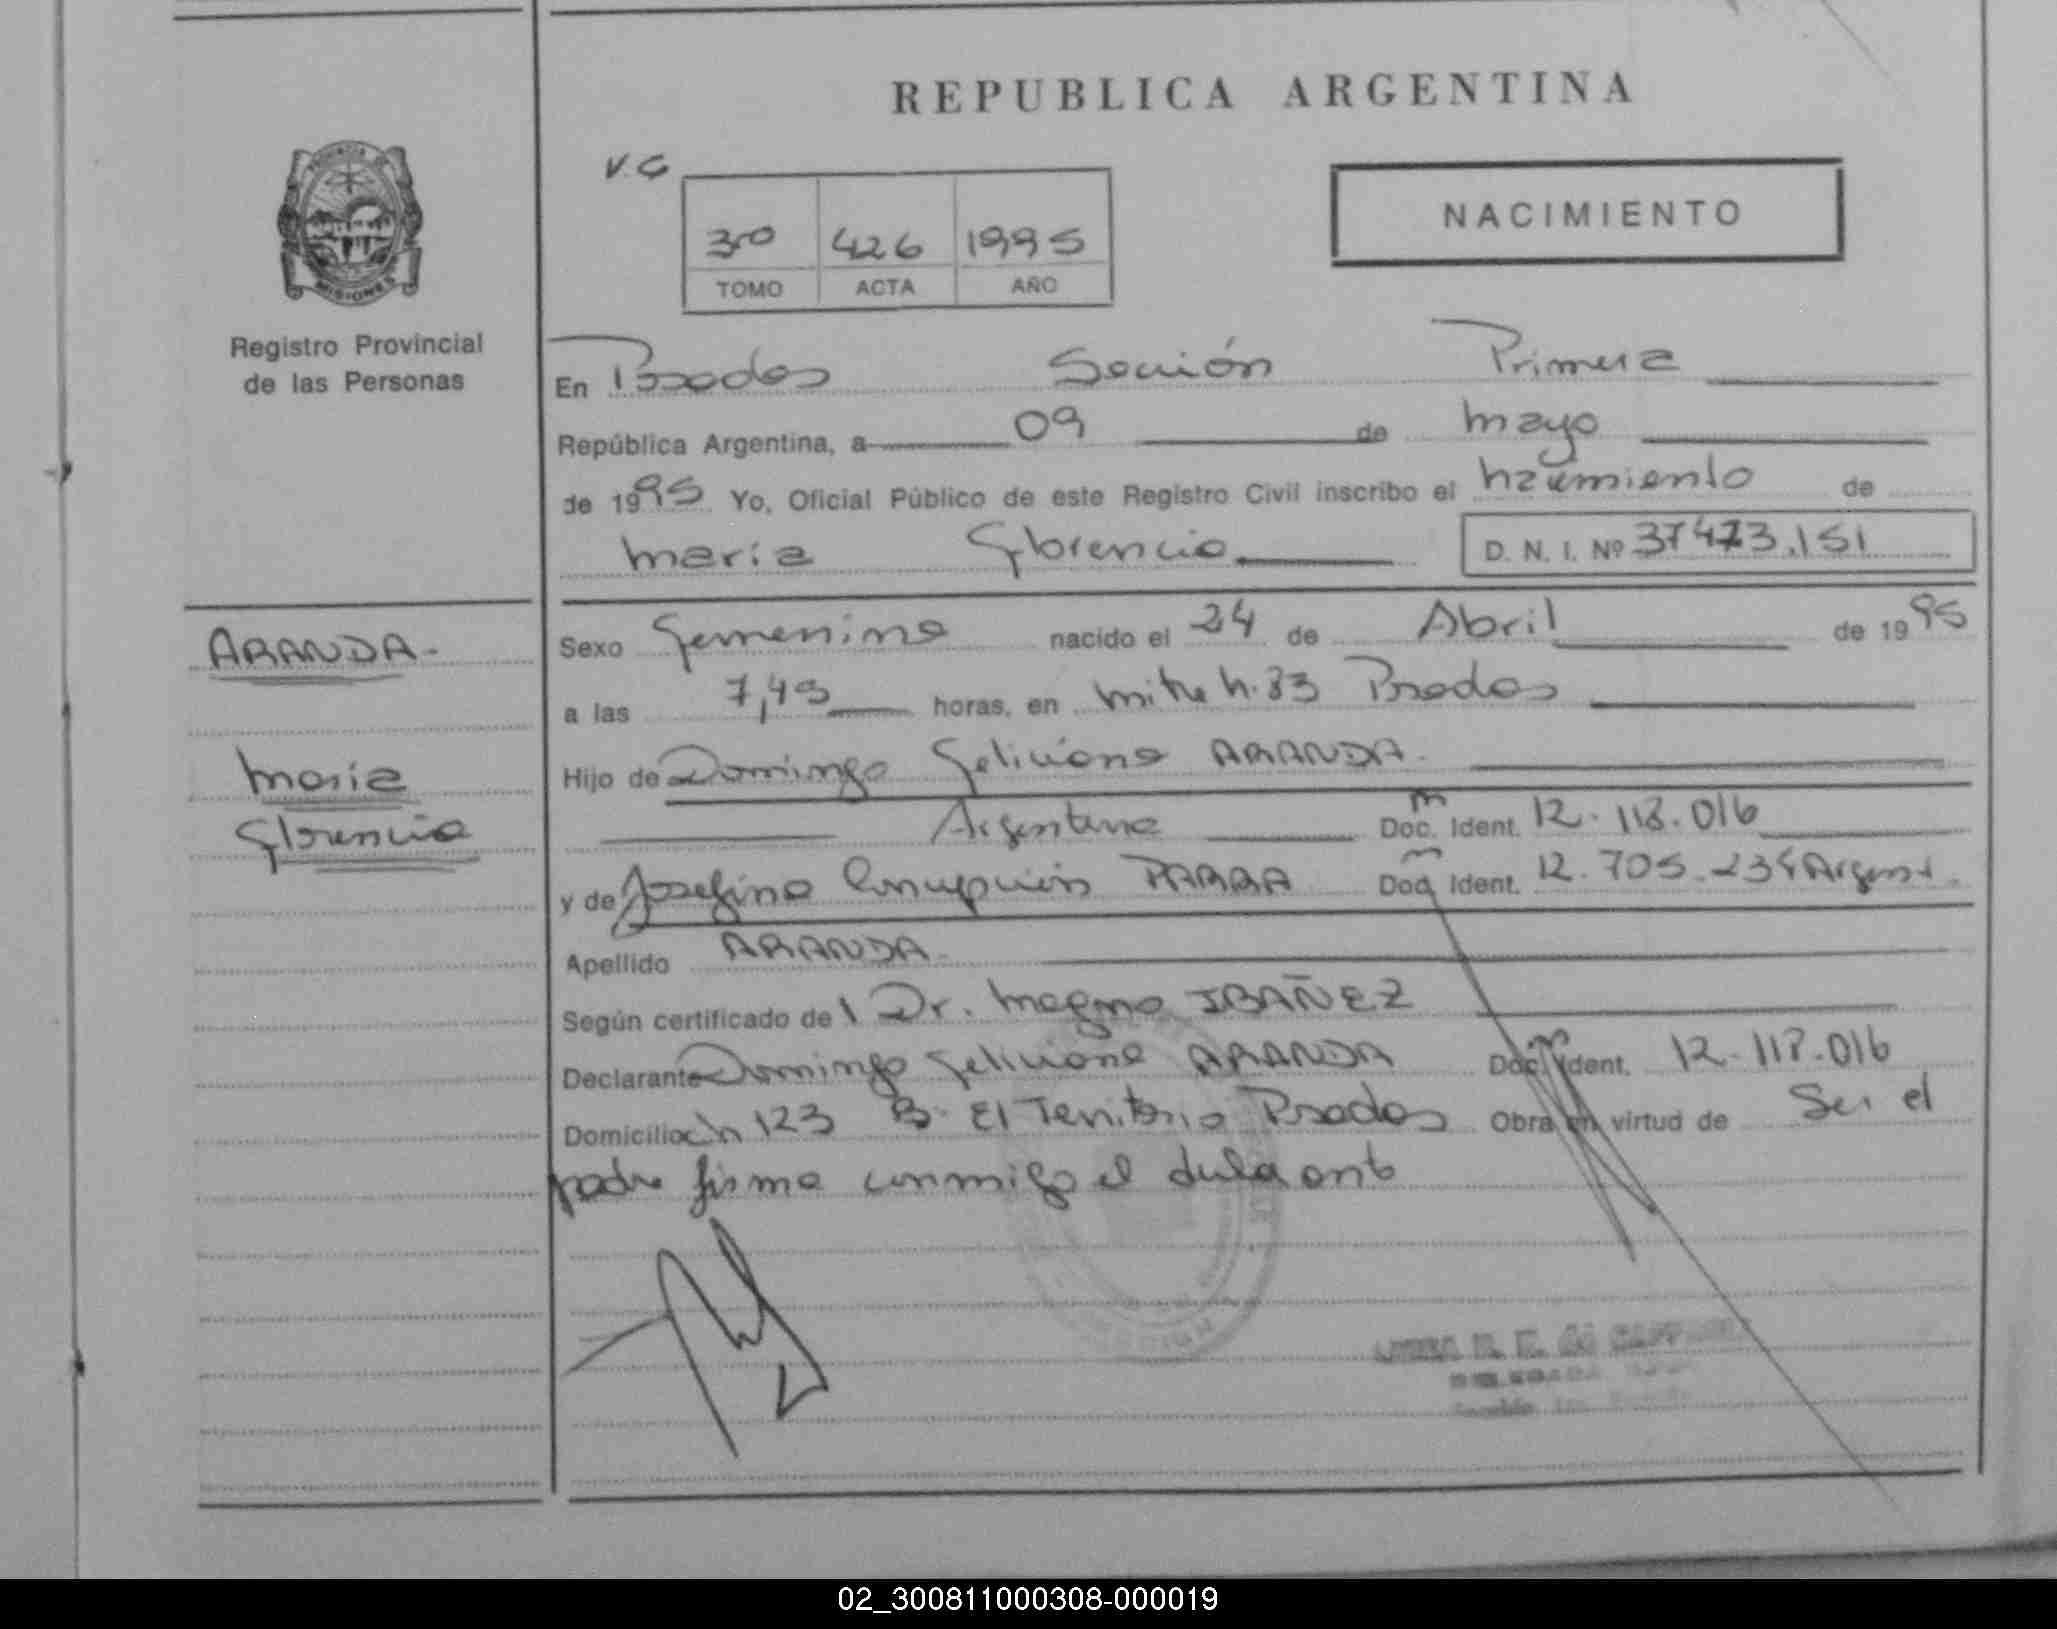 REPUBLICA ARGENTINA
PROVINCIA DE
MISIONES
Registro Provincial
de las Personas
V.G
NACIMIENTO
3ro 426 1995
TOMO ACTA AÑO
En Posadas Sección Primera
República Argentina, a 09 de mayo
de 1995 Yo, Oficial Público de este Registro Civil inscribo el nacimiento de
María Florencia D. N. I. Nº 37473.151
ARANDA-
María
Florencia
Sexo Femenino nacido el 24 de Abril de 1995
a las 7,45 horas, en Mitre h. 83 Posadas
Hijo de Domingo Feliciano ARANDA.
Argentino Doc. Ident. 12.118.016
y de Josefina Concepción PARRA Doc. Ident. 12.705.234 Argent.
Apellido ARANDA.
Según certificado del Dr. Magno IBAÑEZ
Declarante Domingo Feliciano ARANDA Doc. Ident. 12.118.016
Domicilio ch 123 B- El Territorio Posadas Obra en virtud de Ser el
padre firma conmigo el declarante
02_300811000308-000019